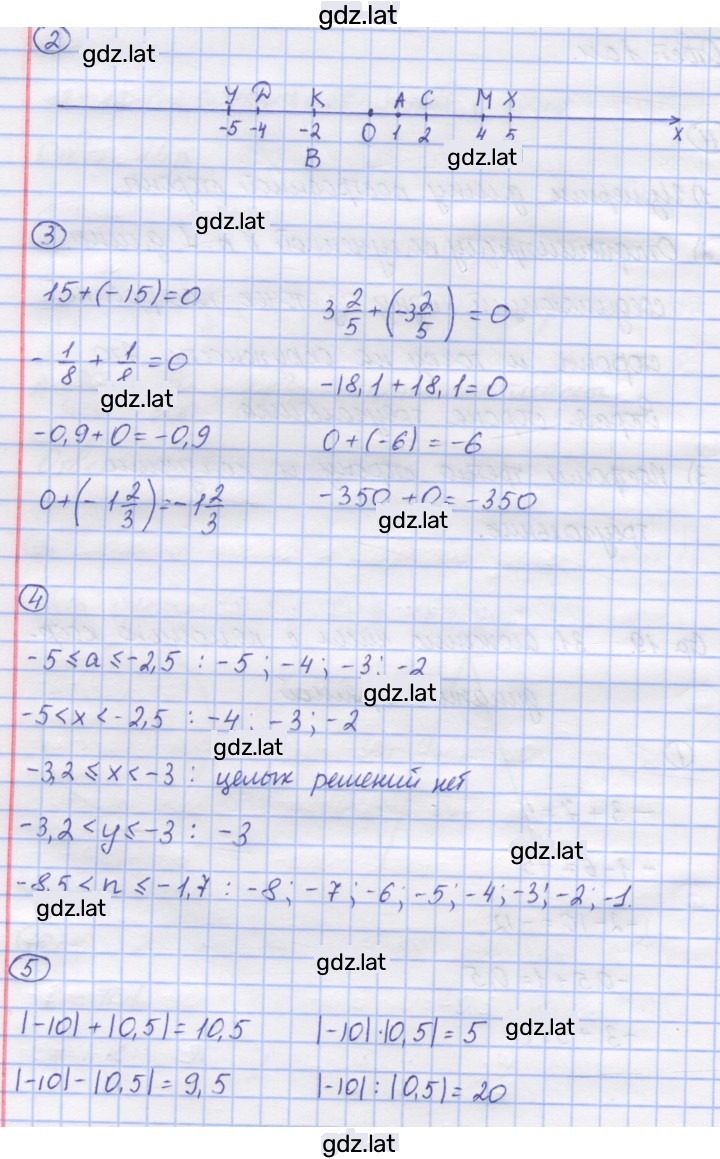 gdz.lat
2
gdz.lat
У D K A C M X
-5 -4 -2 0 1 2 4 5 x
B
gdz.lat
gdz.lat
3
15+(-15)=0
3 2/5 + (-3 2/5) = 0
- 1/8 + 1/8 = 0
gdz.lat
-18,1+18,1=0
-0,9+0=-0,9
0+(-6)=-6
0+(-1 2/3)=-1 2/3
-350+0=-350
gdz.lat
4
-5≤a≤-2,5 : -5; -4; -3; -2
gdz.lat
-5<x<-2,5 : -4; -3; -2
gdz.lat
-3,2≤x<-3 : целых решений нет
-3,2<y≤-3 : -3
gdz.lat
-8,5<n≤-1,7 : -8; -7; -6; -5; -4; -3; -2; -1.
gdz.lat
5
gdz.lat
|-10|+|0,5|=10,5
|-10|·|0,5|=5
gdz.lat
|-10|-|0,5|=9,5
|-10|:|0,5|=20
gdz.lat